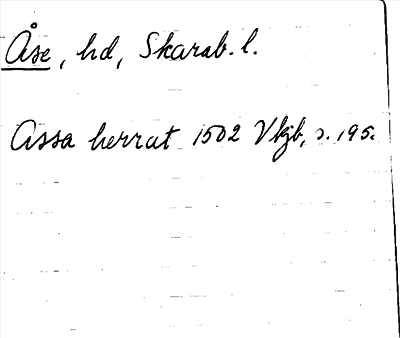 Åse, hd, Skarab. l.
Assa herrat 1502 Vkjb, s. 195.